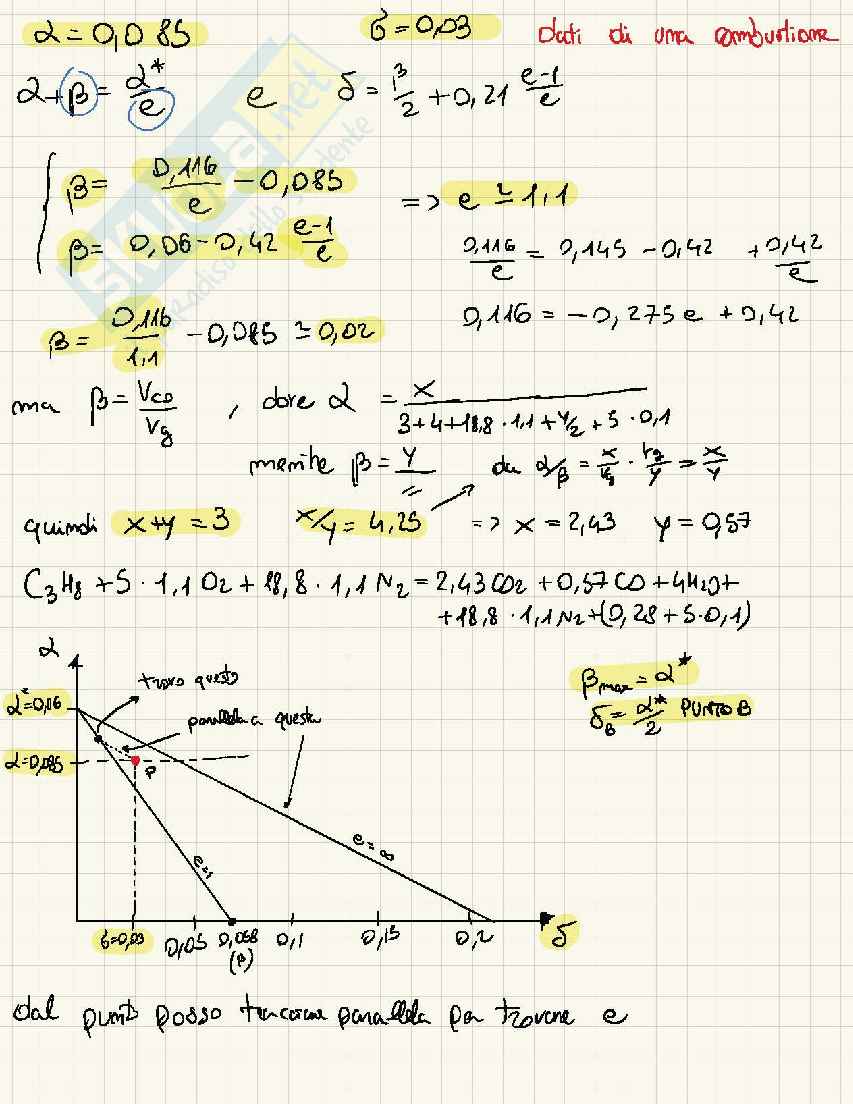 α = 0,085   δ = 0,03   Dati di una combustione
α + β = α*/e   e   δ = β/2 + 0,21 (e-1)/e
β = 0,116/e - 0,085   => e ≃ 1,1
β = 0,06 - 0,42 (e-1)/e   0,116/e = 0,145 - 0,42 + 0,42/e
0,116 = -0,275e + 0,42
β = 0,116/1,1 - 0,085 ≃ 0,02
ma β = Vco/Vg , dove α = x/(3+4+18,8·1,1+y/2+5·0,1)
mentre β = y/=   da α/β = x/Vg · Vg/y = x/y
quindi x+y = 3   x/y = 4,25   => x = 2,43   y = 0,57
C3H8 + 5·1,1 O2 + 18,8·1,1 N2 = 2,43 CO2 + 0,57 CO + 4H2O +
+ 18,8·1,1 N2 + (0,28 + 5·0,1)
α
trovo questo
βmax = α*
α*=0,16
parallela a questa
δB = α*/2 PUNTO B
α=0,085
P
e=∞
e=1
δ=0,03   0,05   0,058   0,1   0,15   0,2   δ
(B)
dal punto posso tracciare parallela per trovare e